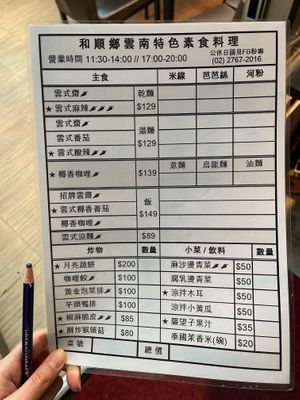 和順鄉雲南特色素食料理
營業時間 11:30-14:00 // 17:00-20:00
公休日請見FB粉專
(02) 2767-2016
主食 米線 芭芭絲 河粉
雲式齋 乾麵
★ 雲式麻辣 $129
雲式齋 湯麵
雲式番茄 $129
★ 雲式酸辣
意麵 烏龍麵 油麵
★ 椰香咖哩 $139
招牌雲齋 飯
★ 雲式椰香番茄 $149
椰香咖哩
雲式涼麵 $89
炸物 數量 小菜 / 飲料 數量
★ 月亮蔬餅 $200 麻沙邊青菜 $50
咖哩餃 $100 腐乳邊青菜 $50
黃金泡菜排 $100 ★ 涼拌木耳 $50
芋頭鴨排 $100 涼拌小黃瓜 $50
★ 椒麻脆皮 $85 ★ 羅望子果汁 $35
★ 酥炸猴頭菇 $80 泰國茉香米(碗) $20
桌號 總價